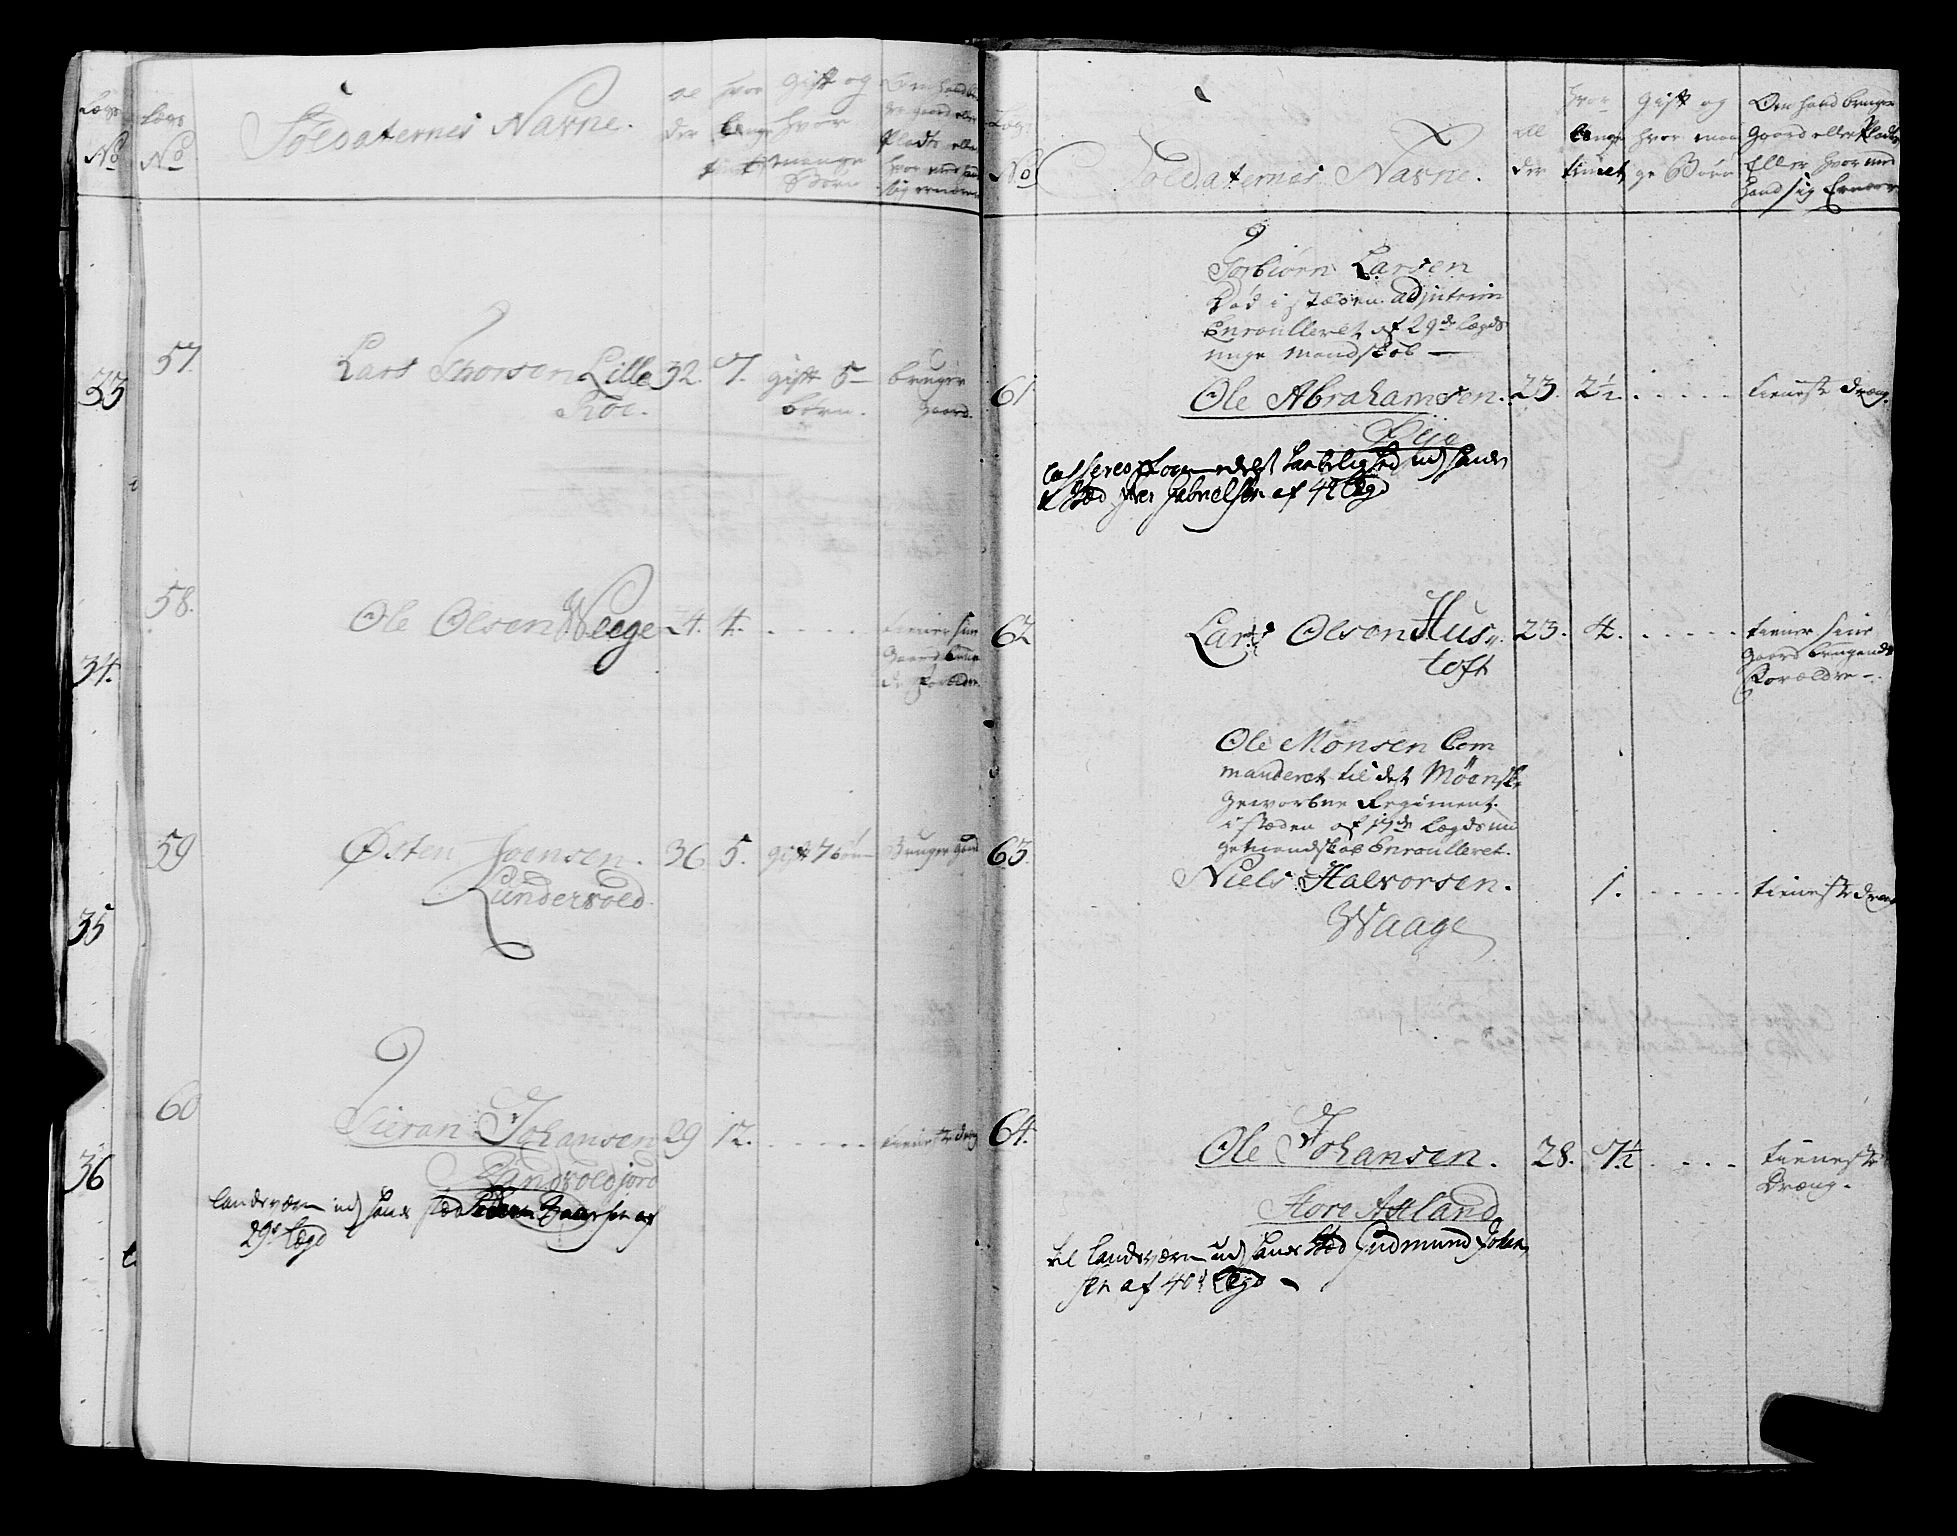 Lægs
No
33
34.
35
36
Lægs
No
Soldaternes Navne.
Al
der
hvor
længe
tient
gift og
hvor
mange
Børn
Om hand bru
ger gaard eller
Plads eller
hvor med hand
sig ernærer
57
Lars Thorsen Lille
Roe.
32. 7. gift 5
børn.
bruger
gaard.
58.
Ole Olsen Waage
24. 4. . . . .
tiener sine
Gaard bruen
de Forældre
59
Østen Joensen.
Lundervold.
36 5. gift 7 børn Bruger gaard
60
Sieran Johansen
Sandvoldjord
29 12. . . . . . tieneste dreng
landværn udj hands sted
29de Lægd
Lægs
No
Soldaternes Navne.
Al
der
hvor
længe
tienet
gift og
hvor man
ge Børn
Om hand bruger
Gaard eller Plads
Eller hvor med
hand sig Ernærer
Torbiørn Larsen
Død i stæden adjuterin
Enroulleret af 29de Lægds
unge Mandskab —
61
Ole Abrahamsen.
23. 2½. . . . . . tieneste dreng.
Casseres formedelst udj hands
Sted Iver Gabrielsen af 42 Lægd
62
Lars Olsen Hus
toft
23. 4. . . . . .
tiener sine
Gaard brugende
Forældre -.
Ole Monsen Com
manderet til det Möenske
Geworbne Regiment.
i stæden af 17de Lægds un
ge mandskab Enroulleret.
63.
Niels Halvorsen.
Waage
1. . . . . . tieneste dreng
64.
Ole Johansen.
Store Axland
28. 7½ . . . .
tieneste
Dreng.
til landværn udj hands Sted Gudmund Johan
sen af 40de Lægd —